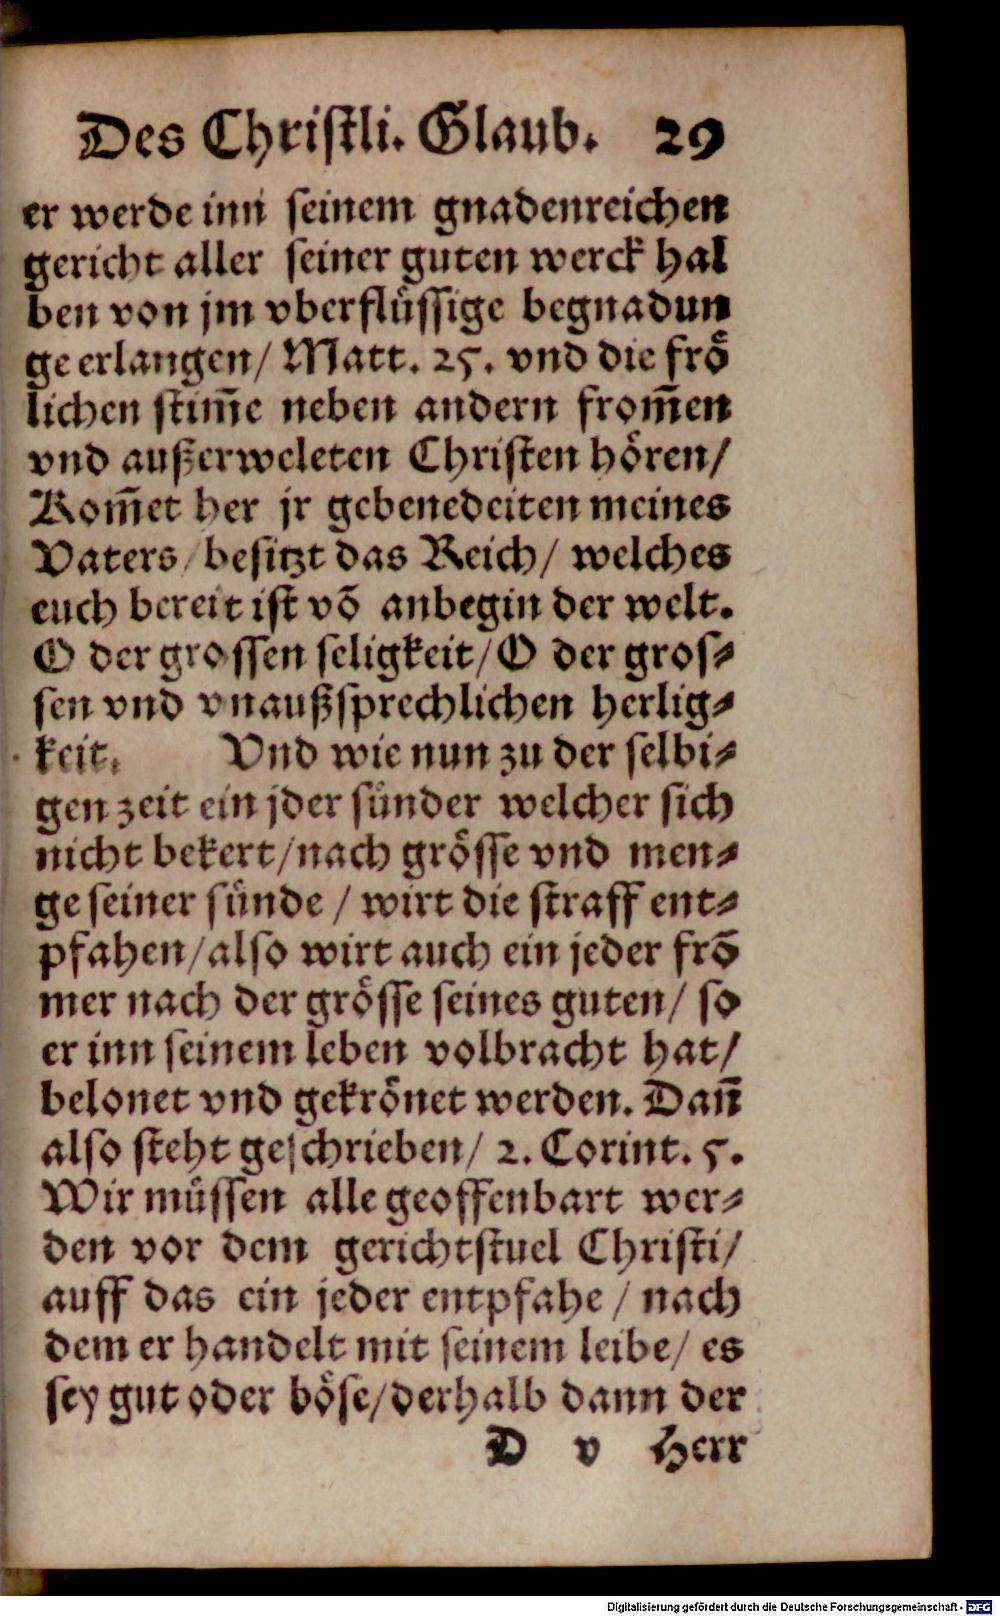 Des Christli. Glaub. 29
er werde inn seinem gnadenreichen
gericht aller seiner guten werck hal
ben von jm vberflüssige begnadun
ge erlangen/ Matt. 25. vnd die frö
lichen stim̃e neben andern from̃en
vnd außerweleten Christen hören/
Kom̃et her jr gebenedeiten meines
Vaters/besitzt das Reich/ welches
euch bereit ist võ anbegin der welt.
O der grossen seligkeit/O der gros⸗
sen vnd vnaußsprechlichen herlig⸗
keit. Vnd wie nun zu der selbi⸗
gen zeit ein jder sünder welcher sich
nicht bekert/nach grösse vnd men⸗
ge seiner sünde / wirt die straff ent⸗
pfahen/also wirt auch ein jeder frõ
mer nach der grösse seines guten/ so
er inn seinem leben volbracht hat/
belonet vnd gekrönet werden. Dañ
also steht geschrieben/ 2. Corint. 5.
Wir müssen alle geoffenbart wer⸗
den vor dem gerichtstuel Christi/
auff das ein jeder entpfahe / nach
dem er handelt mit seinem leibe/ es
sey gut oder böse/derhalb dann der
D v Herr
Digitalisierung gefördert durch die Deutsche Forschungsgemeinschaft - DFG